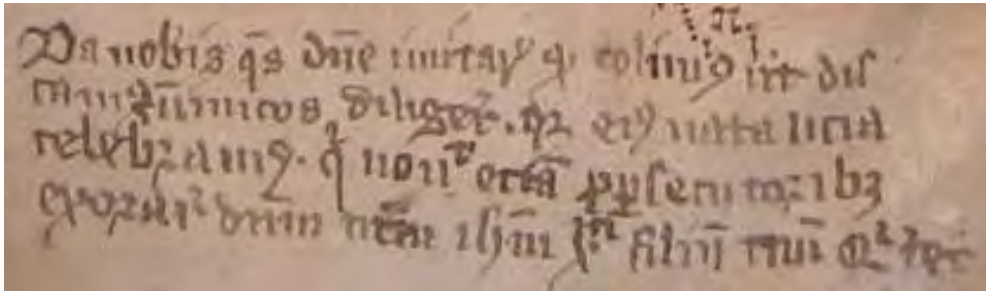 Da nobis qs dne imitari qd colimus ut dis
camus inimicos diligere. quia eius natalicia
celebramus. qui novit etiam persecutoribus
exorare dnm nrm ihm filium tuum Qui tec